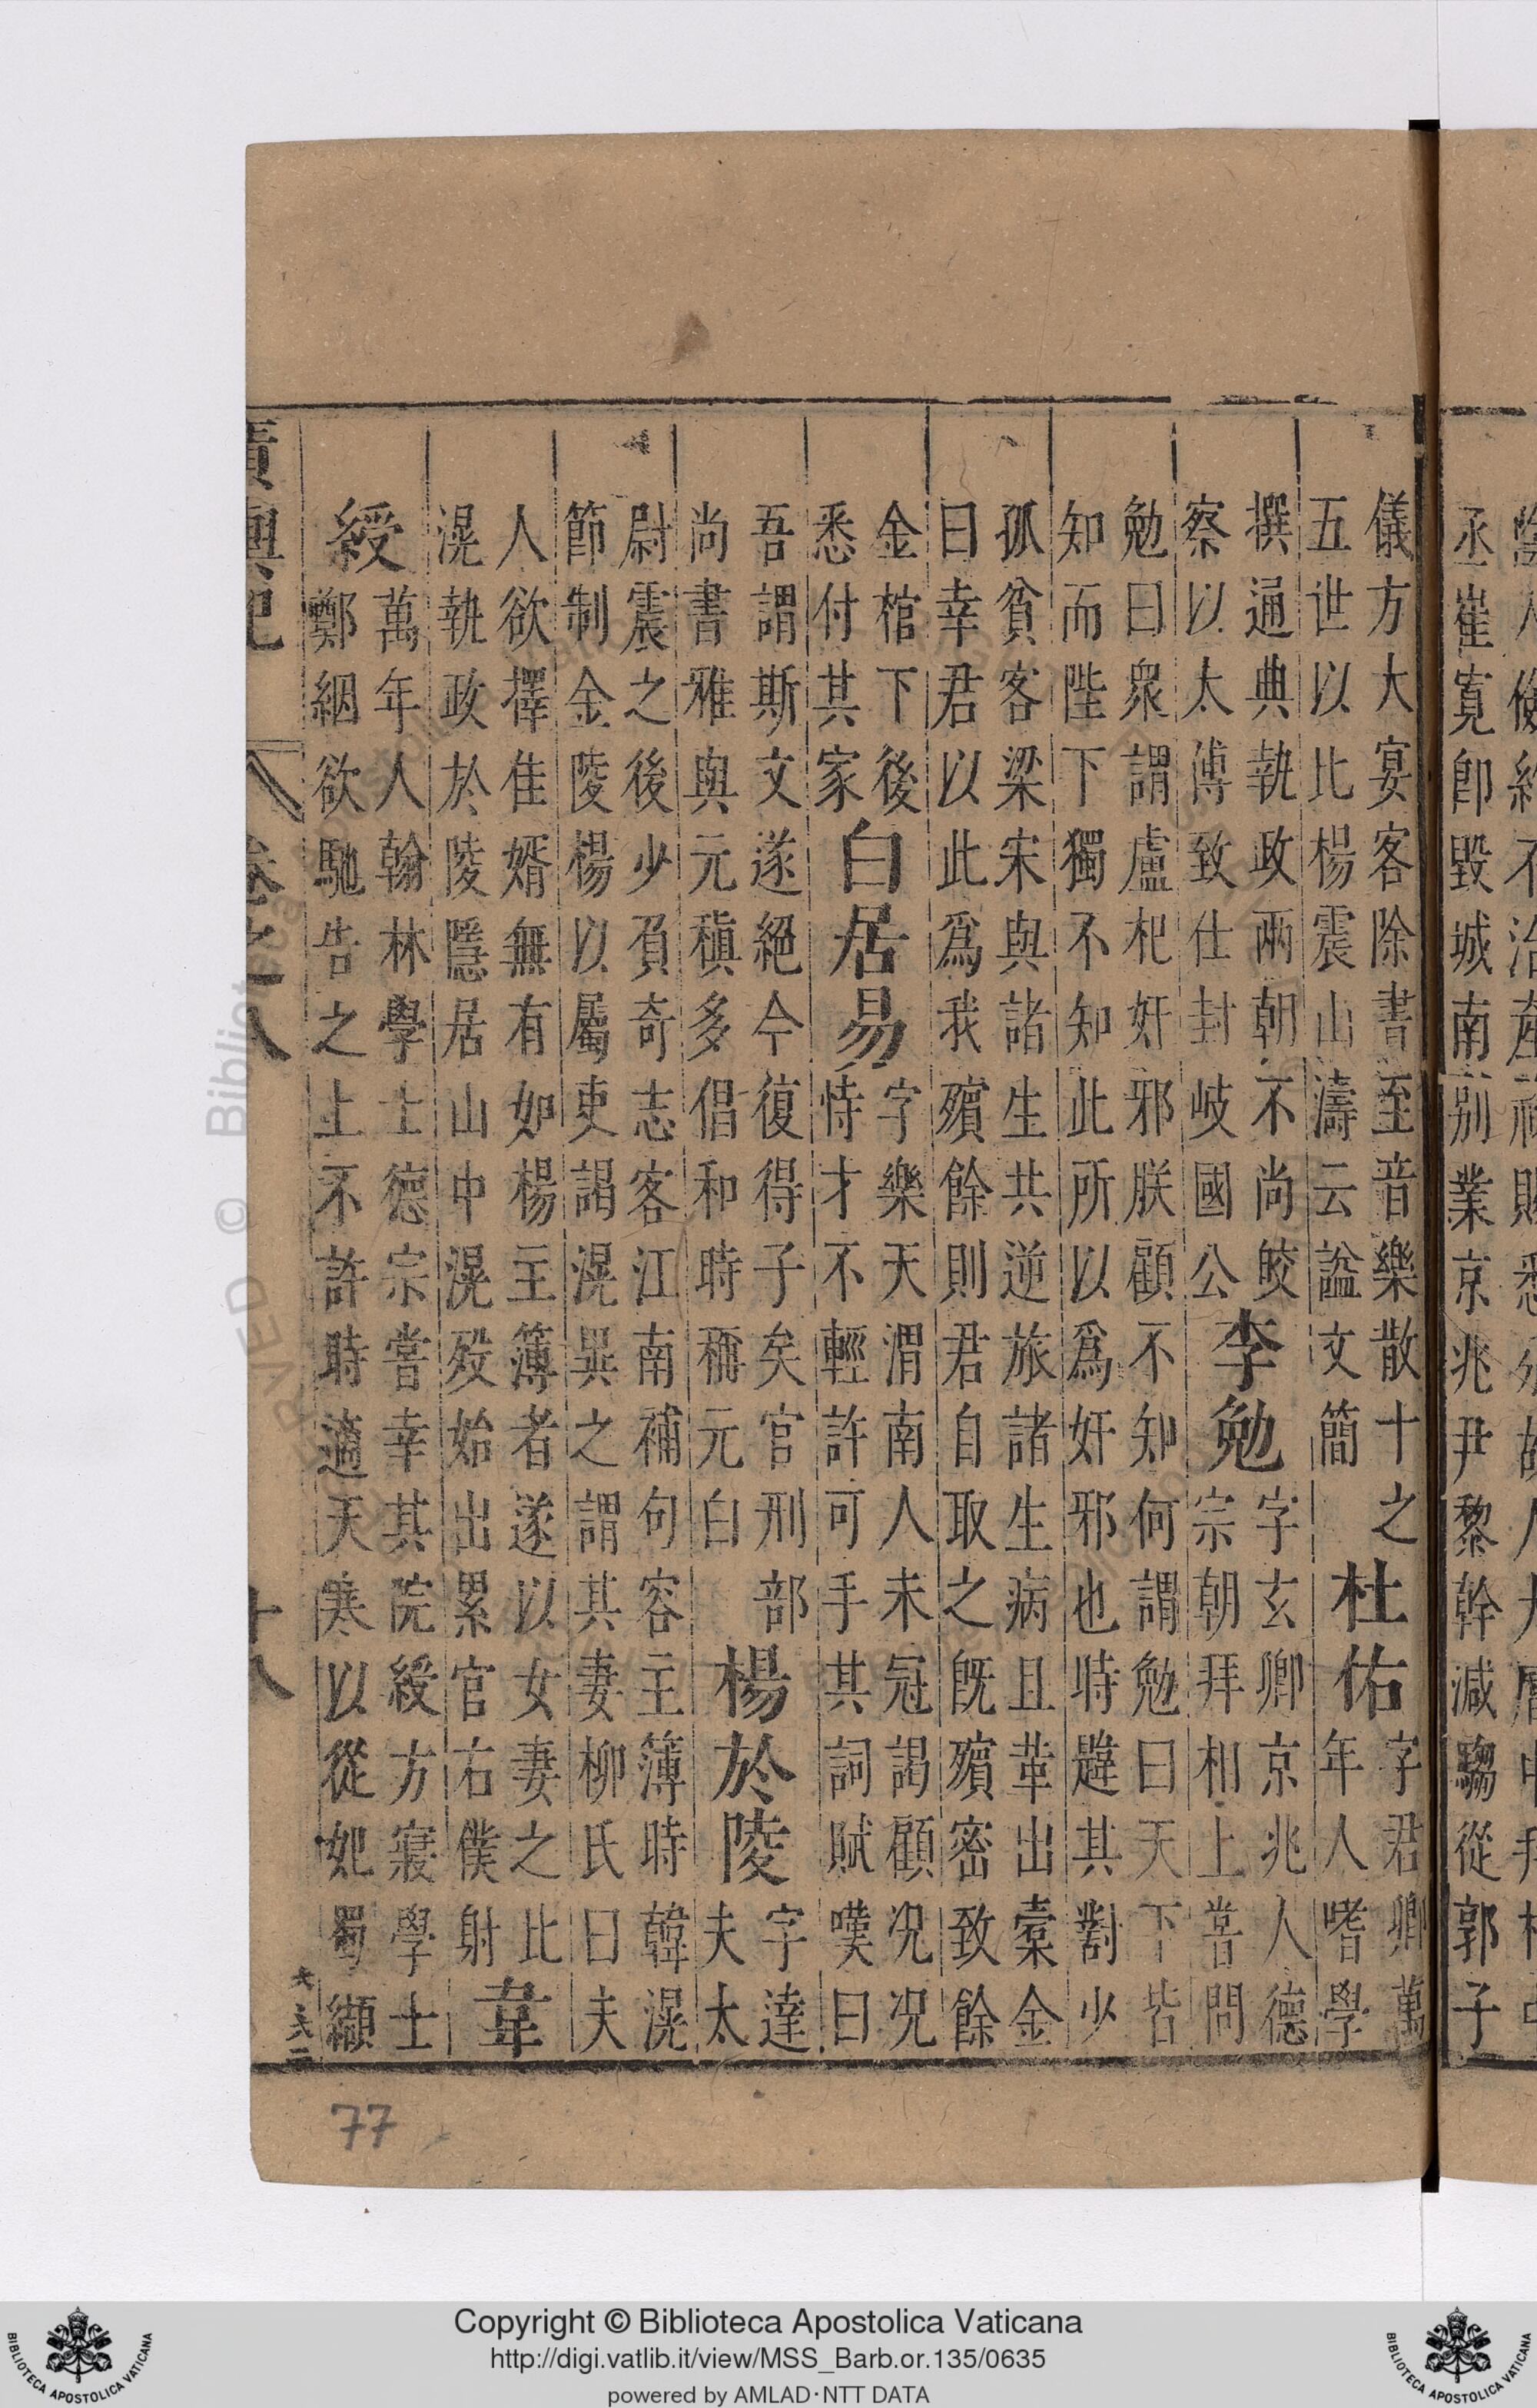 丞崔寬即毀城南別業京兆尹黎幹減騶從郭子
儀方大宴客除書至音樂散十之
五世以比楊震山濤云謚文簡
杜佑
字君卿萬
年人嗜學
撰通典執政兩朝不尚皎
察以太傅致仕封岐國公
李勉
字玄卿京兆人德
宗朝拜相上嘗問
勉曰衆謂盧杞奸邪朕顧不知何謂勉曰天下皆
知而陛下獨不知此所以爲奸邪也時韙其對少
孤貧客梁宋與諸生共逆旅諸生病且革出橐金
曰幸君以此爲我殯餘則君自取之旣殯密致餘
金棺下後
悉付其家
白居易
字樂天渭南人未冠謁顧况况
恃才不輕許可手其詞賦嘆曰
吾謂斯文遂絕今復得子矣官刑部
尚書雅與元稹多倡和時稱元白
楊於陵
字達
夫太
尉震之後少負奇志客江南補句容主簿時韓滉
節制金陵楊以屬吏謁滉異之謂其妻柳氏曰夫
人欲擇佳婿無有如楊主簿者遂以女妻之比
滉執政於陵隱居山中滉歿始出累官右僕射
韋
綬
萬年人翰林學士德宗嘗幸其院綬方寢學士
鄭絪欲馳告之上不許時適天寒以從妃蜀纈
廣輿記
卷之八
十八
77
Copyright © Biblioteca Apostolica Vaticana
http://digi.vatlib.it/view/MSS_Barb.or.135/0635
powered by AMLAD·NTT DATA
BIBLIOTECA APOSTOLICA VATICANA
BIBLIOTECA APOSTOLICA VATICANA